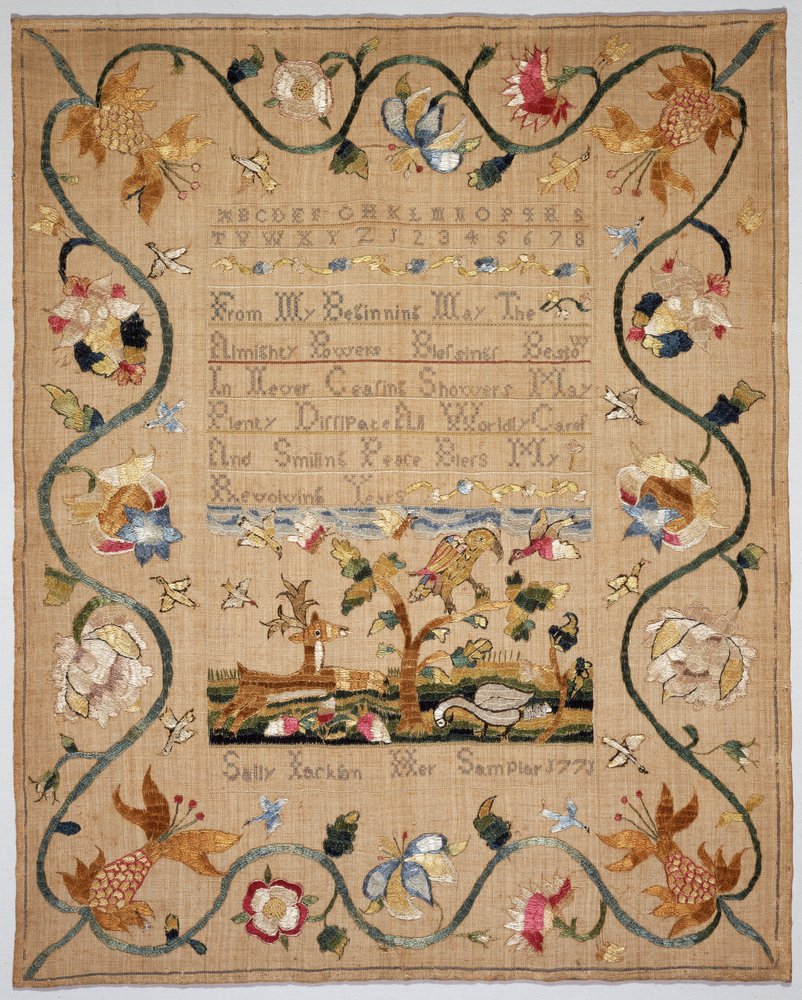 A B C D E F G H K L M N O P Q R S
T V W X Y Z J 2 3 4 5 6 7 8
From My Beginning May The
Almighty Powers Blessings Bestow
In Never Ceasing Showers May
Plenty Dissipate All Worldly Cares
And Smiling Peace Bless My
Revolving Years
Sally Jackson Her Sampler 1771